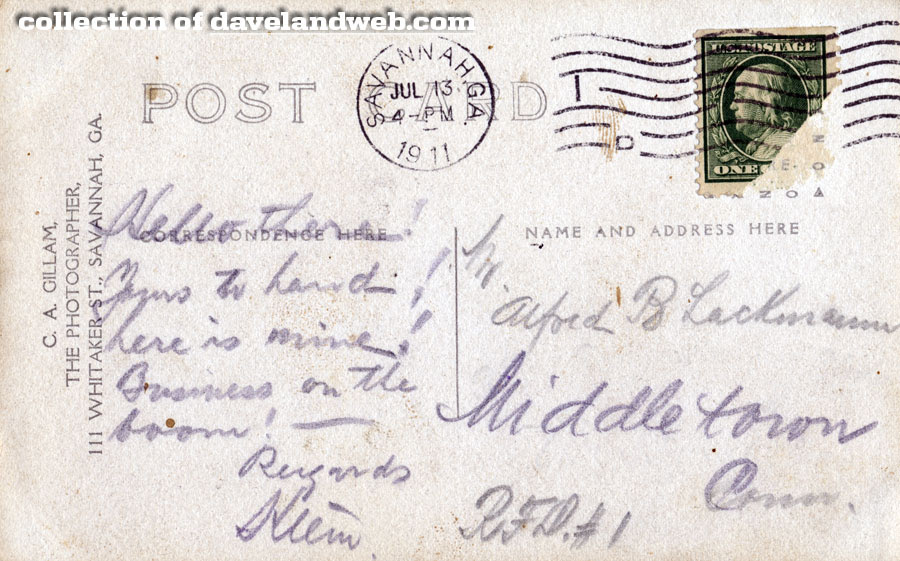 collection of davelandweb.com
POST CARD
SAVANNAH, GA.
JUL 13
4-PM
1911
U.S. POSTAGE
ONE
AZO
C. A. GILLAM,
THE PHOTOGRAPHER,
111 WHITAKER ST., SAVANNAH, GA.
CORRESPONDENCE HERE
Hello there!
Yours to hand!
here is mine!
Business on the
boom! —
Regards
NAME AND ADDRESS HERE
Mr
Alfred B Lackmann
Middletown
Conn.
R.F.D. #1